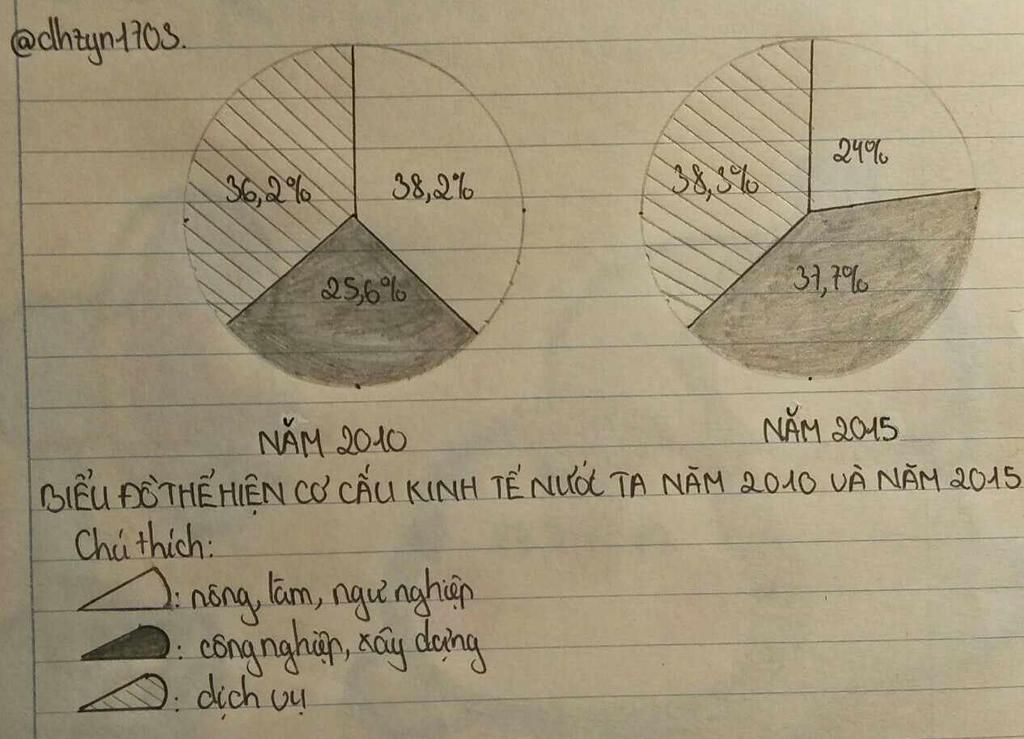 @dhzyn1703.
36,2%
38,2%
25,6%
38,3%
24%
37,7%
NĂM 2010
NĂM 2015
BIỂU ĐỒ THỂ HIỆN CƠ CẤU KINH TẾ NƯỚC TA NĂM 2010 VÀ NĂM 2015
Chú thích:
: nông, lâm, ngư nghiệp
: công nghiệp, xây dựng
: dịch vụ